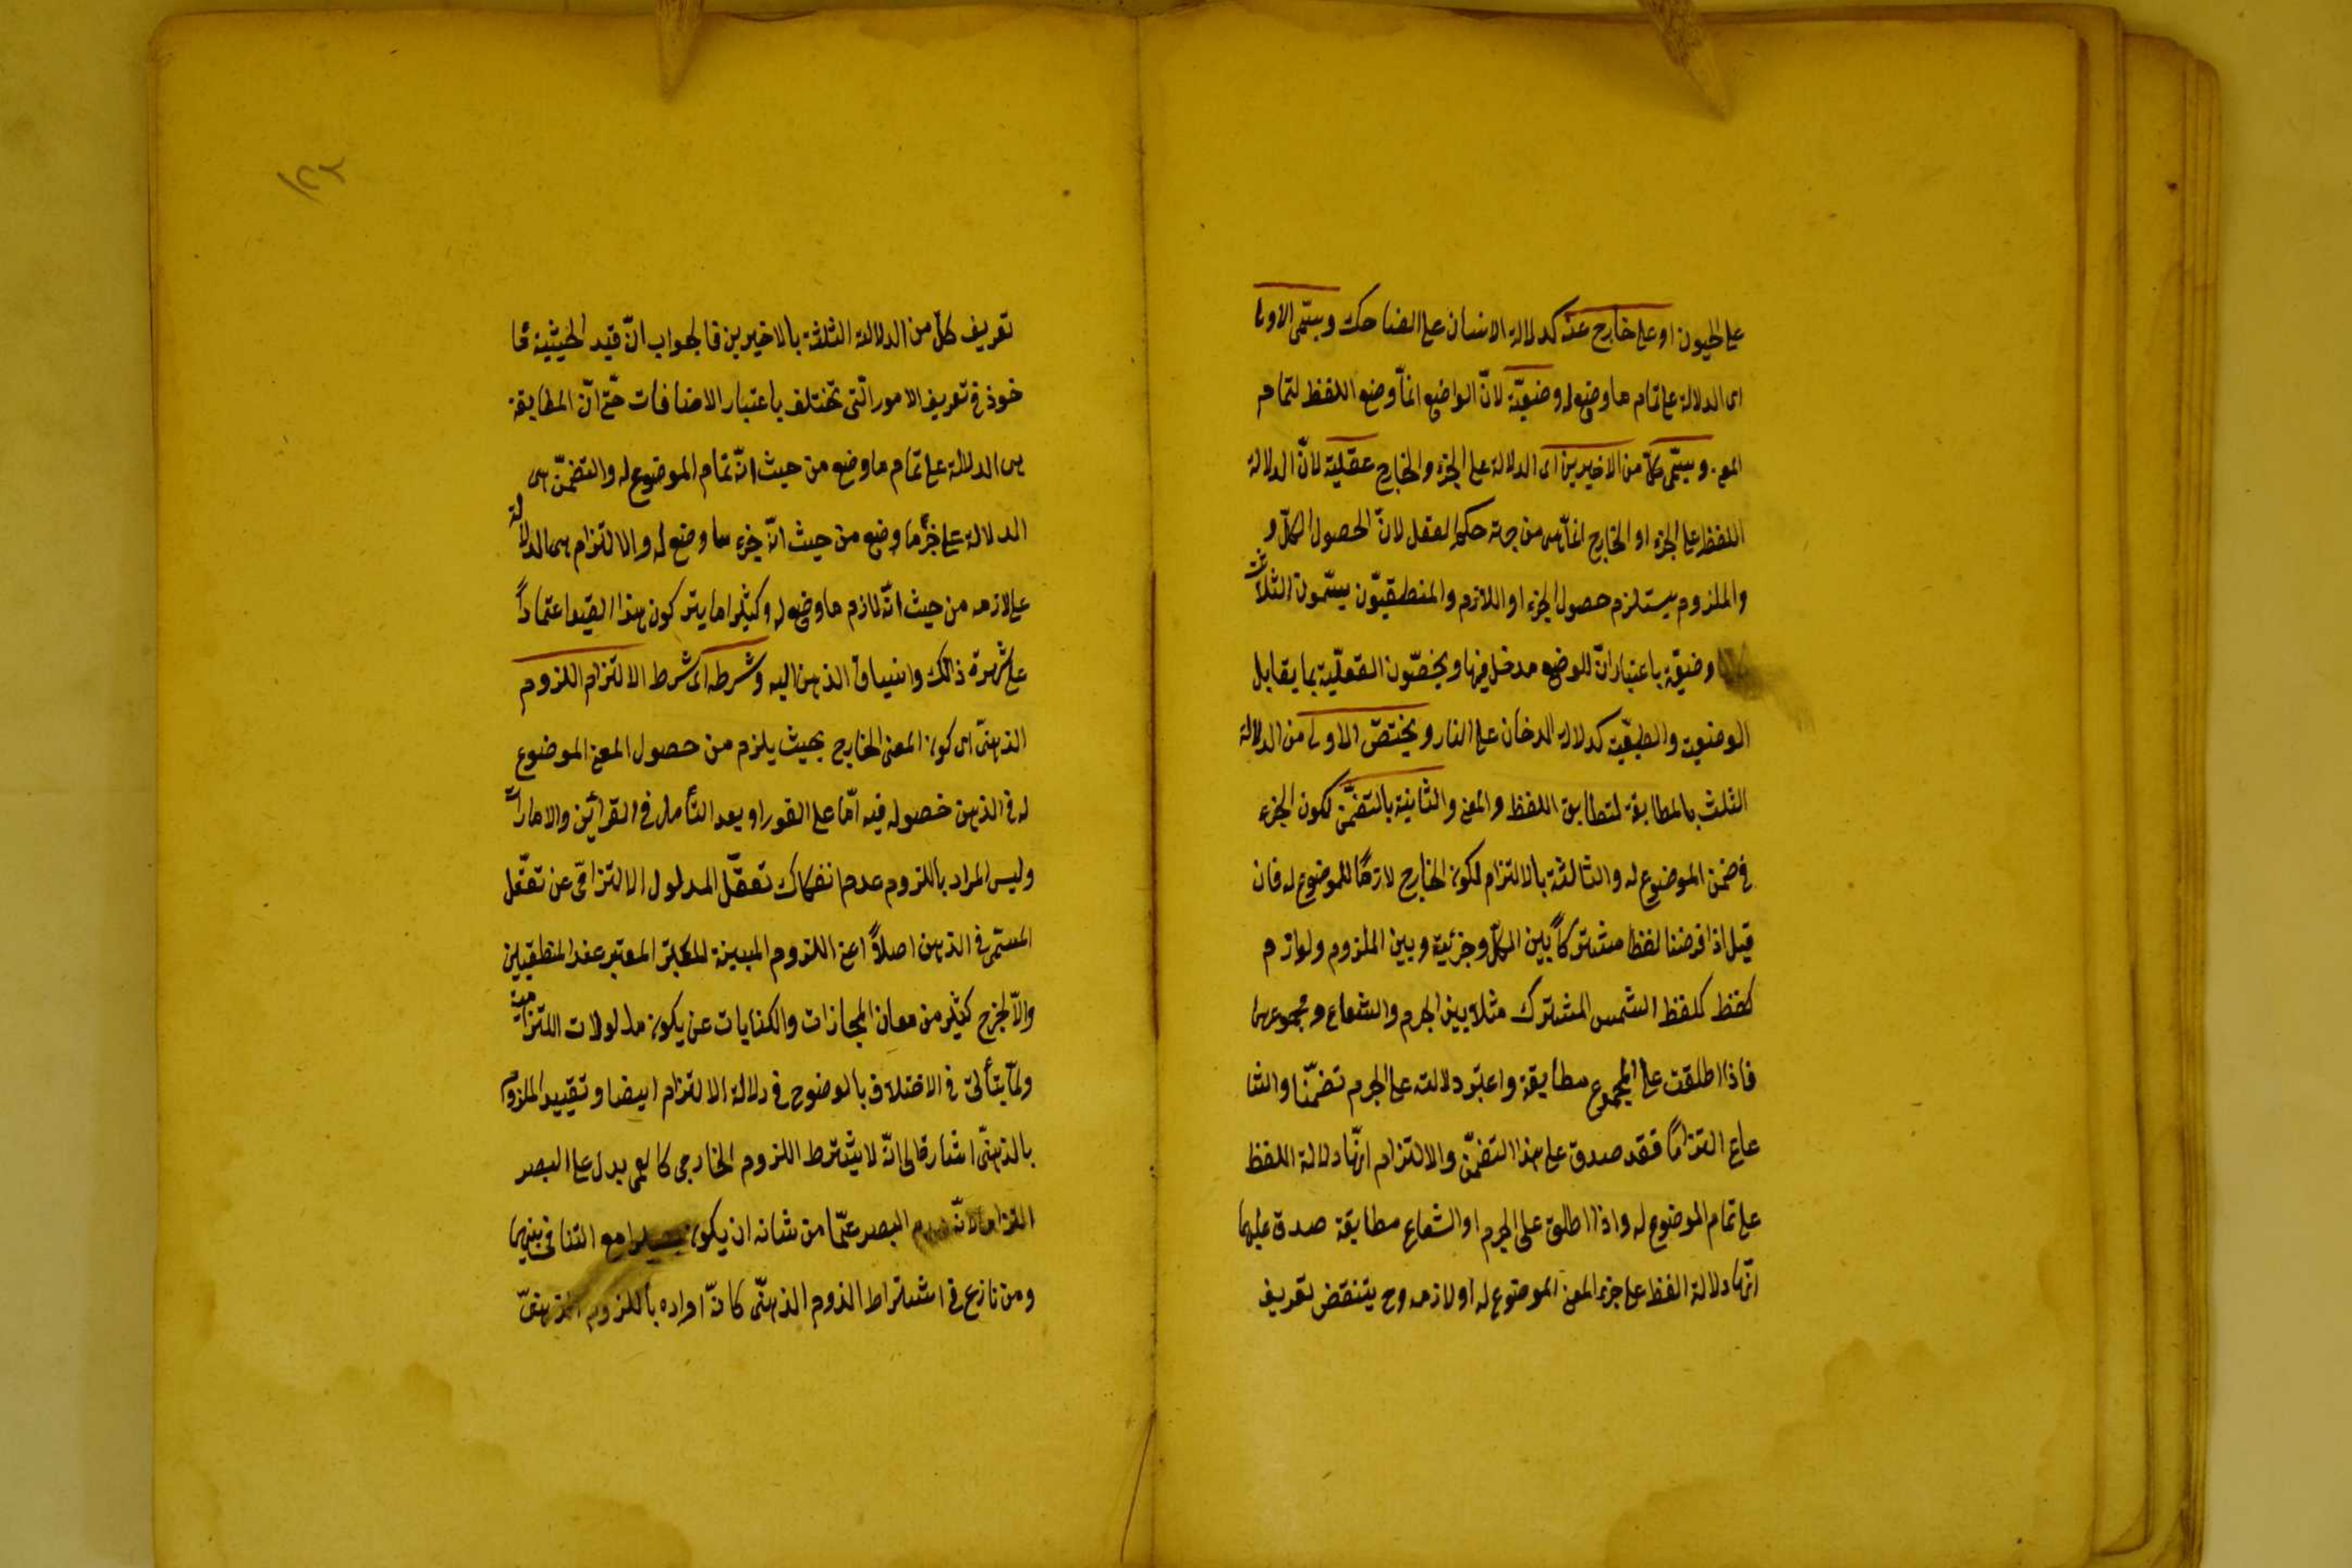 على الحيون او على خارج عنه كدلالة الانسان على الضاحك ويسمّى الاولى
اى الدلالة على تمام ما وضع له وضعيّة لانّ الواضع انمّا وضع اللفظ لتمام
المعنى ويسمّى كلّ من الاخيرين اى الدلالة على الجزء والخارج عقلية لانّ الدلالة
اللفظ على الجزء او الخارج انمّا هى من جهة حكم العقل لانّ الحصول الكلّ و
والملزوم يستلزم حصول الجزء او اللازم والمنطقيّون يسمّون الثلاثة
وضعيّة باعتبار انّ للوضع مدخل فيها ويخصّون العقليّة بما يقابل
الوضعية والطبعيّة كدلالة الدخان على النار ويختصّ الاولى من الدلالة
الثلث بالمطابقة لتطابق اللفظ والمعنى والثانية بالتضمّن لكون الجزء
فى ضمن الموضوع له والثالثة بالالتزام لكون الخارج لازمًا للموضوع له فان
قيل اذا فرضنا لفظا مشتركاً بين الكلّ وجزئية وبين الملزوم ولوازم
كفظ كلفظ الشمس المشترك مثلا بين الجرم والشعاع ومجموعهما
فاذا اطلقت على المجموع مطابقة واعتبر دلالته على الجرم تضمّنا والشا
عاع التزامًا فقد صدق على هذا التضمّن والالتزام انّها دلالة اللفظ
على تمام الموضوع له واذا اطلق على الجرم او الشعاع مطابقة صدق عليها
انّها دلالة الفظ على جزء المعنى الموضوع له او لازمه وح يتنقض تعريف
١٢٢
تعريف كلّ من الدلالة الثلثة بالاخيرين فالجواب انّ قيد الحيثية مأ
خوذ فى تعريف الامور الّتى تختلف باعتبار الاضافات حتّى انّ المطابقة
هى الدلالة على تمام ما وضع من حيث انّه تمام الموضوع له والتضمّن هى
الدلالة على جزء ما وضع من حيث انّه جزء ما وضع له والالتزام هى الدلالة
على لازمه من حيث انّه لازم ما وضع له وكثيرا ما يتركون هذا القيد اعتماداً
على شهرة ذالك وانسياق الذهن اليه وشرطه اى شرط الالتزام اللزوم
الذهنىّ اى كون المعنى الخارج بحيث يلزم من حصول المعنى الموضوع
له فى الذهن حصوله فيه امّا على الفور او بعد التأمل فى القرائن والامارات
وليس المراد باللزوم عدم انفكاك تعقّل المدلول الالتزامىّ عن تعقّل
المسمّى فى الذهن اصلاً اعنى اللزوم المبينة المعتبر عند المنطقيين
والاّ لخرج كثير من معان المجازات والكنايات عن يكون مدلولات التزامية
ولمّا يتأتى فى الاختلاف بالوضوح فى دلالة الالتزام ايضا وتقييد الملزوم
بالذهنىّ اشارة الى انّه لا يشترط اللزوم الخارجى كالعمى يدل على البصر
التزاما لانّه عدم البصر عمّا من شانه ان يكون بصيرا مع التنافى بينهما
ومن نازع فى اشتراط الذوم الذهنىّ كانّه اراده باللزوم الذهنىّ